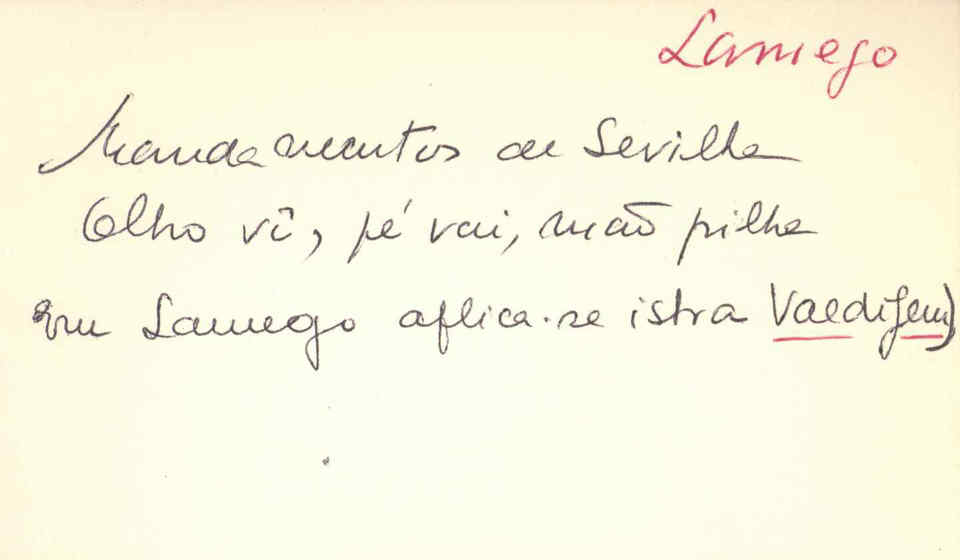 Lamego
Mandamentos de Sevilha
Olho vê, pé vai, mão pilha
Em Lamego aplica-se istra Valdigem)